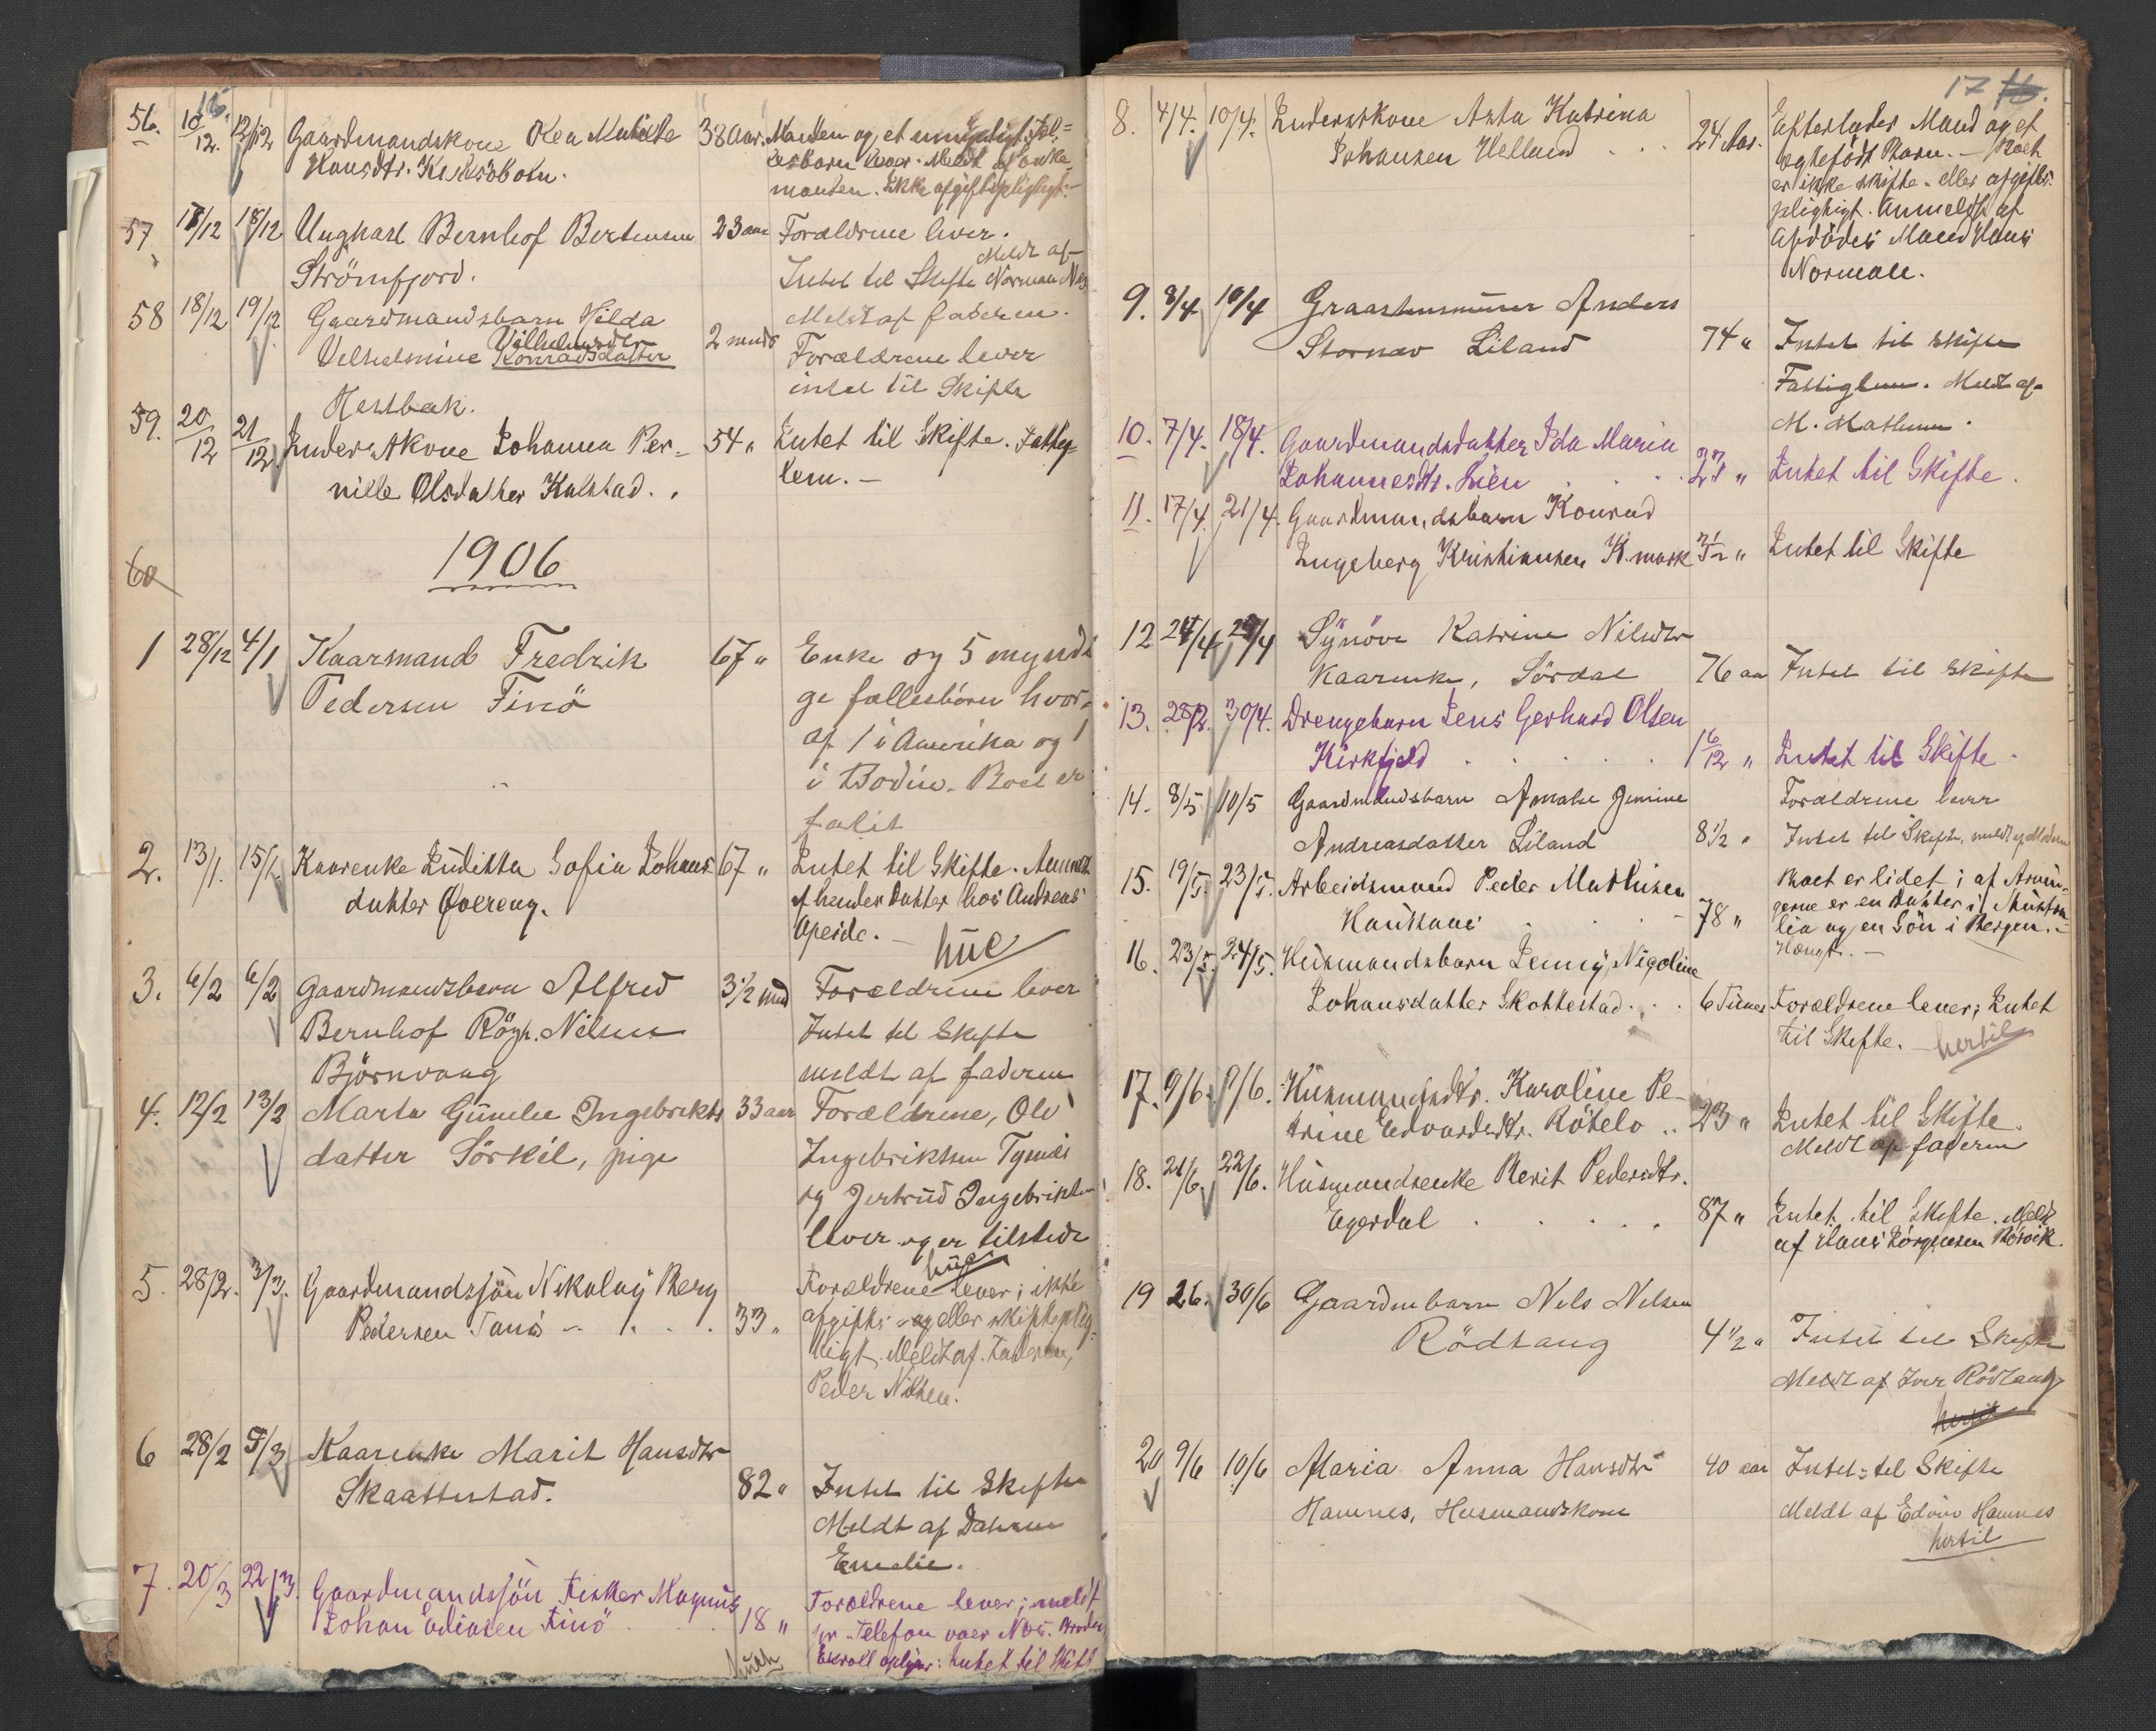 56. 10/12. 12/12 Gaardmandskone Rea Matilde 38 Aar. Manden og et umyndigt Føl=
Hansdtr. lesbarn lever. Meldt af Enke
manden. Ikke afgiftspligtigt.
57 18/12 18/12 Ungkarl Bernhof Bertensen 23 aar Forældrene lever.
Meldt af
Strömfjord. Intet til Skifte Norman
58 18/12 19/12 Gaardmandsbarn Hilda Meldt af faderen.
Vilhelmsdtr 2 mndr
Velhelmine Konradsdatter Forældrene lever
intet til Skifte
Hestbak.
59. 20/12 21/12 Inderstkone Johanna Per= 54 " Intet til Skifte. Fattig
nille Olsdatter Kalstad. lem. –
1906
60
1 28/12 4/1 Kaarmand Fredrik 67 " Enke og 5 myndi
Pedersen Finö ge fællesbörn hvor=
af 1 i Amerika og 1
i Bodin. Boet er
falit
2. 13/1. 15/1 Kaarenke Inditta Sofia Johans 67 " Intet til Skifte. Anmeldt
datter Overeng. af hendes Datter hos Andreas
Opeide. –
3. 6/2 6/2 Gaardmandsbarn Alfred 3 1/2 mnd Forældrene lever
Bernhof Rögn. Nilsen Intet til Skifte
Björnvaag meldt af faderen
4. 12/2 13/2 Marta Gunelie Ingebrikts 33 aar Forældrene, Ole
datter Sörkil, pige Ingebriktsen Tynes
og Jertrud Ingebriktsen
lever og er tilstede
5. 28/2. 3/3. Gaardmandssön Nikolay Berg Forældrene lever; ikke
Pedersen Tanö 33 " afgifts- og eller skifteplig=
tigt. Meldt af Faderen,
Peder Nilsen.
6 28/2 5/3 Kaarenke Marit Hansdtr
Skaattestad. 82 " Intet til Skifte
Meldt af Datteren
Emelie.
7. 20/3 22/3. Gaardmandssön Fisker Magnus Forældrene lever; meldt
Johan Ediasen Finö 18 " pr. Telefon vaer Nos. Broder
oplyser: Intet til Skift
17 16.
8. 4/4. 10/4. Inderstkone Asta Katrina 24 Aar. Efterlader Mand og et
Johansen Helland ægtefödt Barn. – Boet
er ikke skifte- eller afgifts-
pligtigt. Anmeldt af
Afdödes Mand Hans
Normann.
9. 8/4 10/4 Graastensmurer Anders
Stornæv Liland 74 " Intet til Skifte
Fattiglem. Meldt af
M. Mathisen.
10. 7/4. 18/4. Gaardmandsdatter Ida Maria
Johannesdtr. Lien 27 " Intet til Skifte.
11. 17/4. 21/4. Gaardmandsbarn Konrad
Ingeberg Kristiansen K.mark " Intet til Skifte
12 24/4 28/4 Synöve Katrine Nilsdtr
Kaarenke, Sördal 76 aar Intet til Skifte
13. 28/2. 30/4. Drengebarn Jens Gerhard Olsen
Kirkfjeld 1 6/12 " Intet til Skifte.
14. 8/5 10/5 Gaardmandsbarn Amalie Jensine Forældrene lever
Andreasdatter Liland 8 1/2 " Intet til Skifte, meldt af Moderen
15. 19/5. 23/5. Arbeidsmand Peder Mathisen Boet er lidet; af Arvin=
gerne er en Datter i Austra
78 " lia og en Sön i Bergen.
16. 23/5. 24/5. Husmandsbarn Jenny Nigoline
Johansdatter Skottestad. 6 Timer Forældrene lever; Intet
til Skifte. – hertil
17. 9/6. 9/6. Husmandsdtr. Karoline Pe-
trine Edvardsdtr. Rötelv 23 " Intet til Skifte.
Meldt af faderen
18. 21/6. 22/6. Husmandsenke Berit Pedersdtr.
Egerdal 87 " Intet til Skifte. Meldt
af Hans Jörgensen Rörvik.
19 26. 30/6 Gaardmbarn Nils Nilsen
Rödtang 4 1/2 " Intet til Skifte
Meldt af Iver Rödtang
hertil
20 9/6 10/6 Maria Anna Hansdtr 40 aar Intet til Skifte
Hamnes, Husmandskone Meldt af Edvin Hamnes
hertil